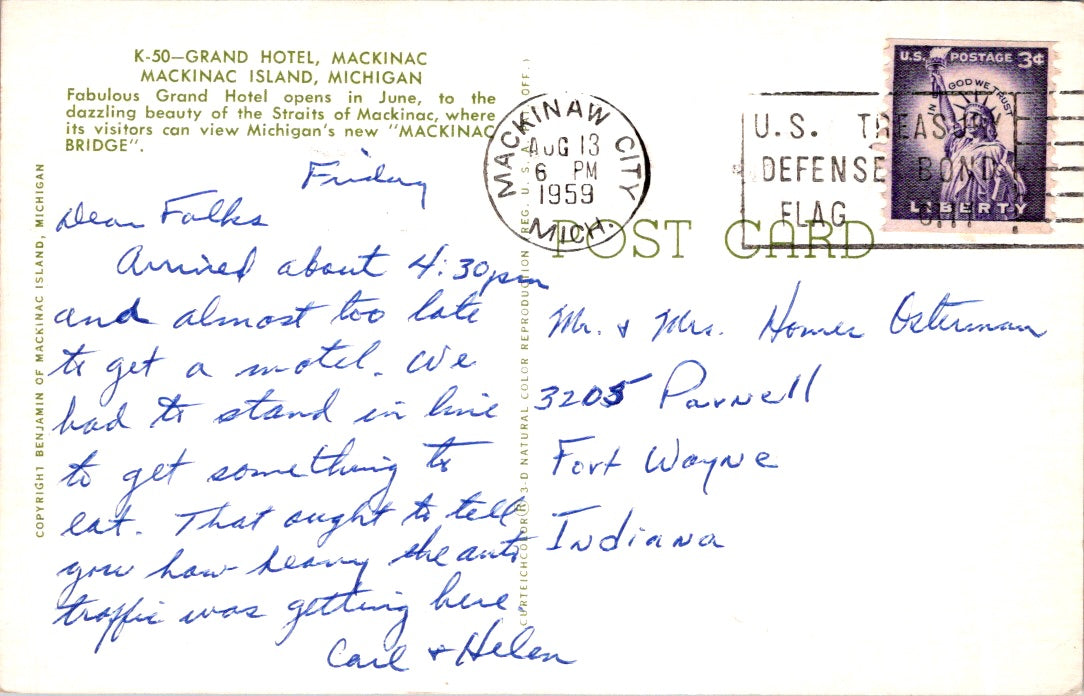 K-50—GRAND HOTEL, MACKINAC
MACKINAC ISLAND, MICHIGAN
Fabulous Grand Hotel opens in June, to the
dazzling beauty of the Straits of Mackinac, where
its visitors can view Michigan's new "MACKINAC
BRIDGE".
Friday
Dear Folks
Arrived about 4:30pm
and almost too late
to get a motel. We
had to stand in line
to get something to
eat. That ought to tell
you how heavy the auto
traffic was getting here.
Carl & Helen
COPYRIGHT BENJAMIN OF MACKINAC ISLAND, MICHIGAN
CURTEICHCOLOR® 3-D NATURAL COLOR REPRODUCTION REG. U.S.A. OFF.)
MACKINAW CITY
AUG 13
6 PM
1959
MICH.
U.S. TREASURY
DEFENSE BOND
FLAG
U.S. POSTAGE 3¢
IN GOD WE TRUST
LIBERTY
POST CARD
Mr. & Mrs. Homer Osterman
3205 Parnell
Fort Wayne
Indiana